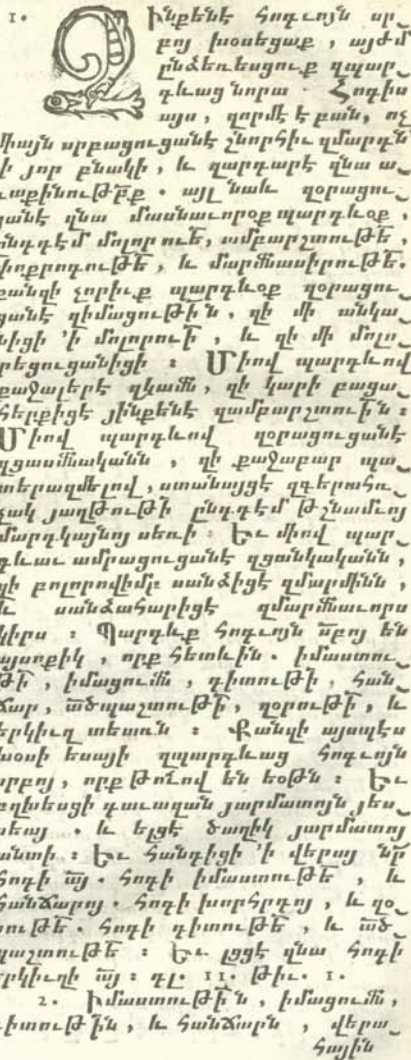 1. Զինքենէ հոգւոյն սր֊
բոյ խօսեցաք, այժմ
ընձեռեսցուք զպար֊
գևաց նորա. Հոգիս
այս, զորմէ է բան, ոչ
միայն սրբացուցանէ շնորհիւ զմարդն
ի յոր բնակի, և զարդարէ զնա ա֊
ռաքինութք. այլ նաև զօրացու֊
ցանէ զնա մասնաւորօք պարգևօք,
ընդդէմ մոլորուե, ամբարշտութե,
փոքրոգութե, և մարմնասիրութե.
քանզի չորիւք պարգևօք զօրացու֊
ցանէ զիմացութին, զի մի անկա֊
նիցի ՚ի մոլորուի, և զի մի մոլո֊
րեցուցանիցի : Միով պարգևով
քաջալերէ զկամն, զի կարի բացա֊
հերքիցէ յինքենէ զամբարշտուին :
Միով պարգևով զօրացուցանէ
զցասմնականն, զի քաջաբար պա֊
տերազմելով, ստանայցէ զգերահռ֊
չակ յաղթութի ընդդէմ թշնամւոյ
մարդկայնոյ սեռի : Եւ միով պար֊
գևաւ ամրացուցանէ զցանկականն,
զի բոլորովիմբ սանձիցէ զմարմինն,
և սանձահարիցէ զմարմնաւորս
կիրս : Պարգևք հոգւոյն սբոյ են
այսոքիկ, որք հետևին. իմաստու֊
թի, իմացումն, գիտութի, հան֊
ճար, ածպաշտութի, զօրութի, և
երկիւղ տեառն : Քանզի այսպէս
խօսի եսայի զպարգևաց հոգւոյն
սրբոյ, որք թուով են եօթն : Եւ
բղխեսցի գաւազան յարմատոյն յես֊
սեայ. և ելցէ ծաղիկ յարմատոյ
անտի : Եւ հանգիցի ՚ի վերայ նր
հոգի այ. հոգի իմաստութե, և
հանճարոյ. հոգի խորհրդոյ, և զօ֊
րութե. հոգի գիտութե, և ած֊
պաշտութե : Եւ լցցէ զնա հոգի
երկիւղի այ : գլ. 11. թիւ. 1.
2. Իմաստութին, իմացումն,
գիտութին, և հանճարն, վերա֊
հային